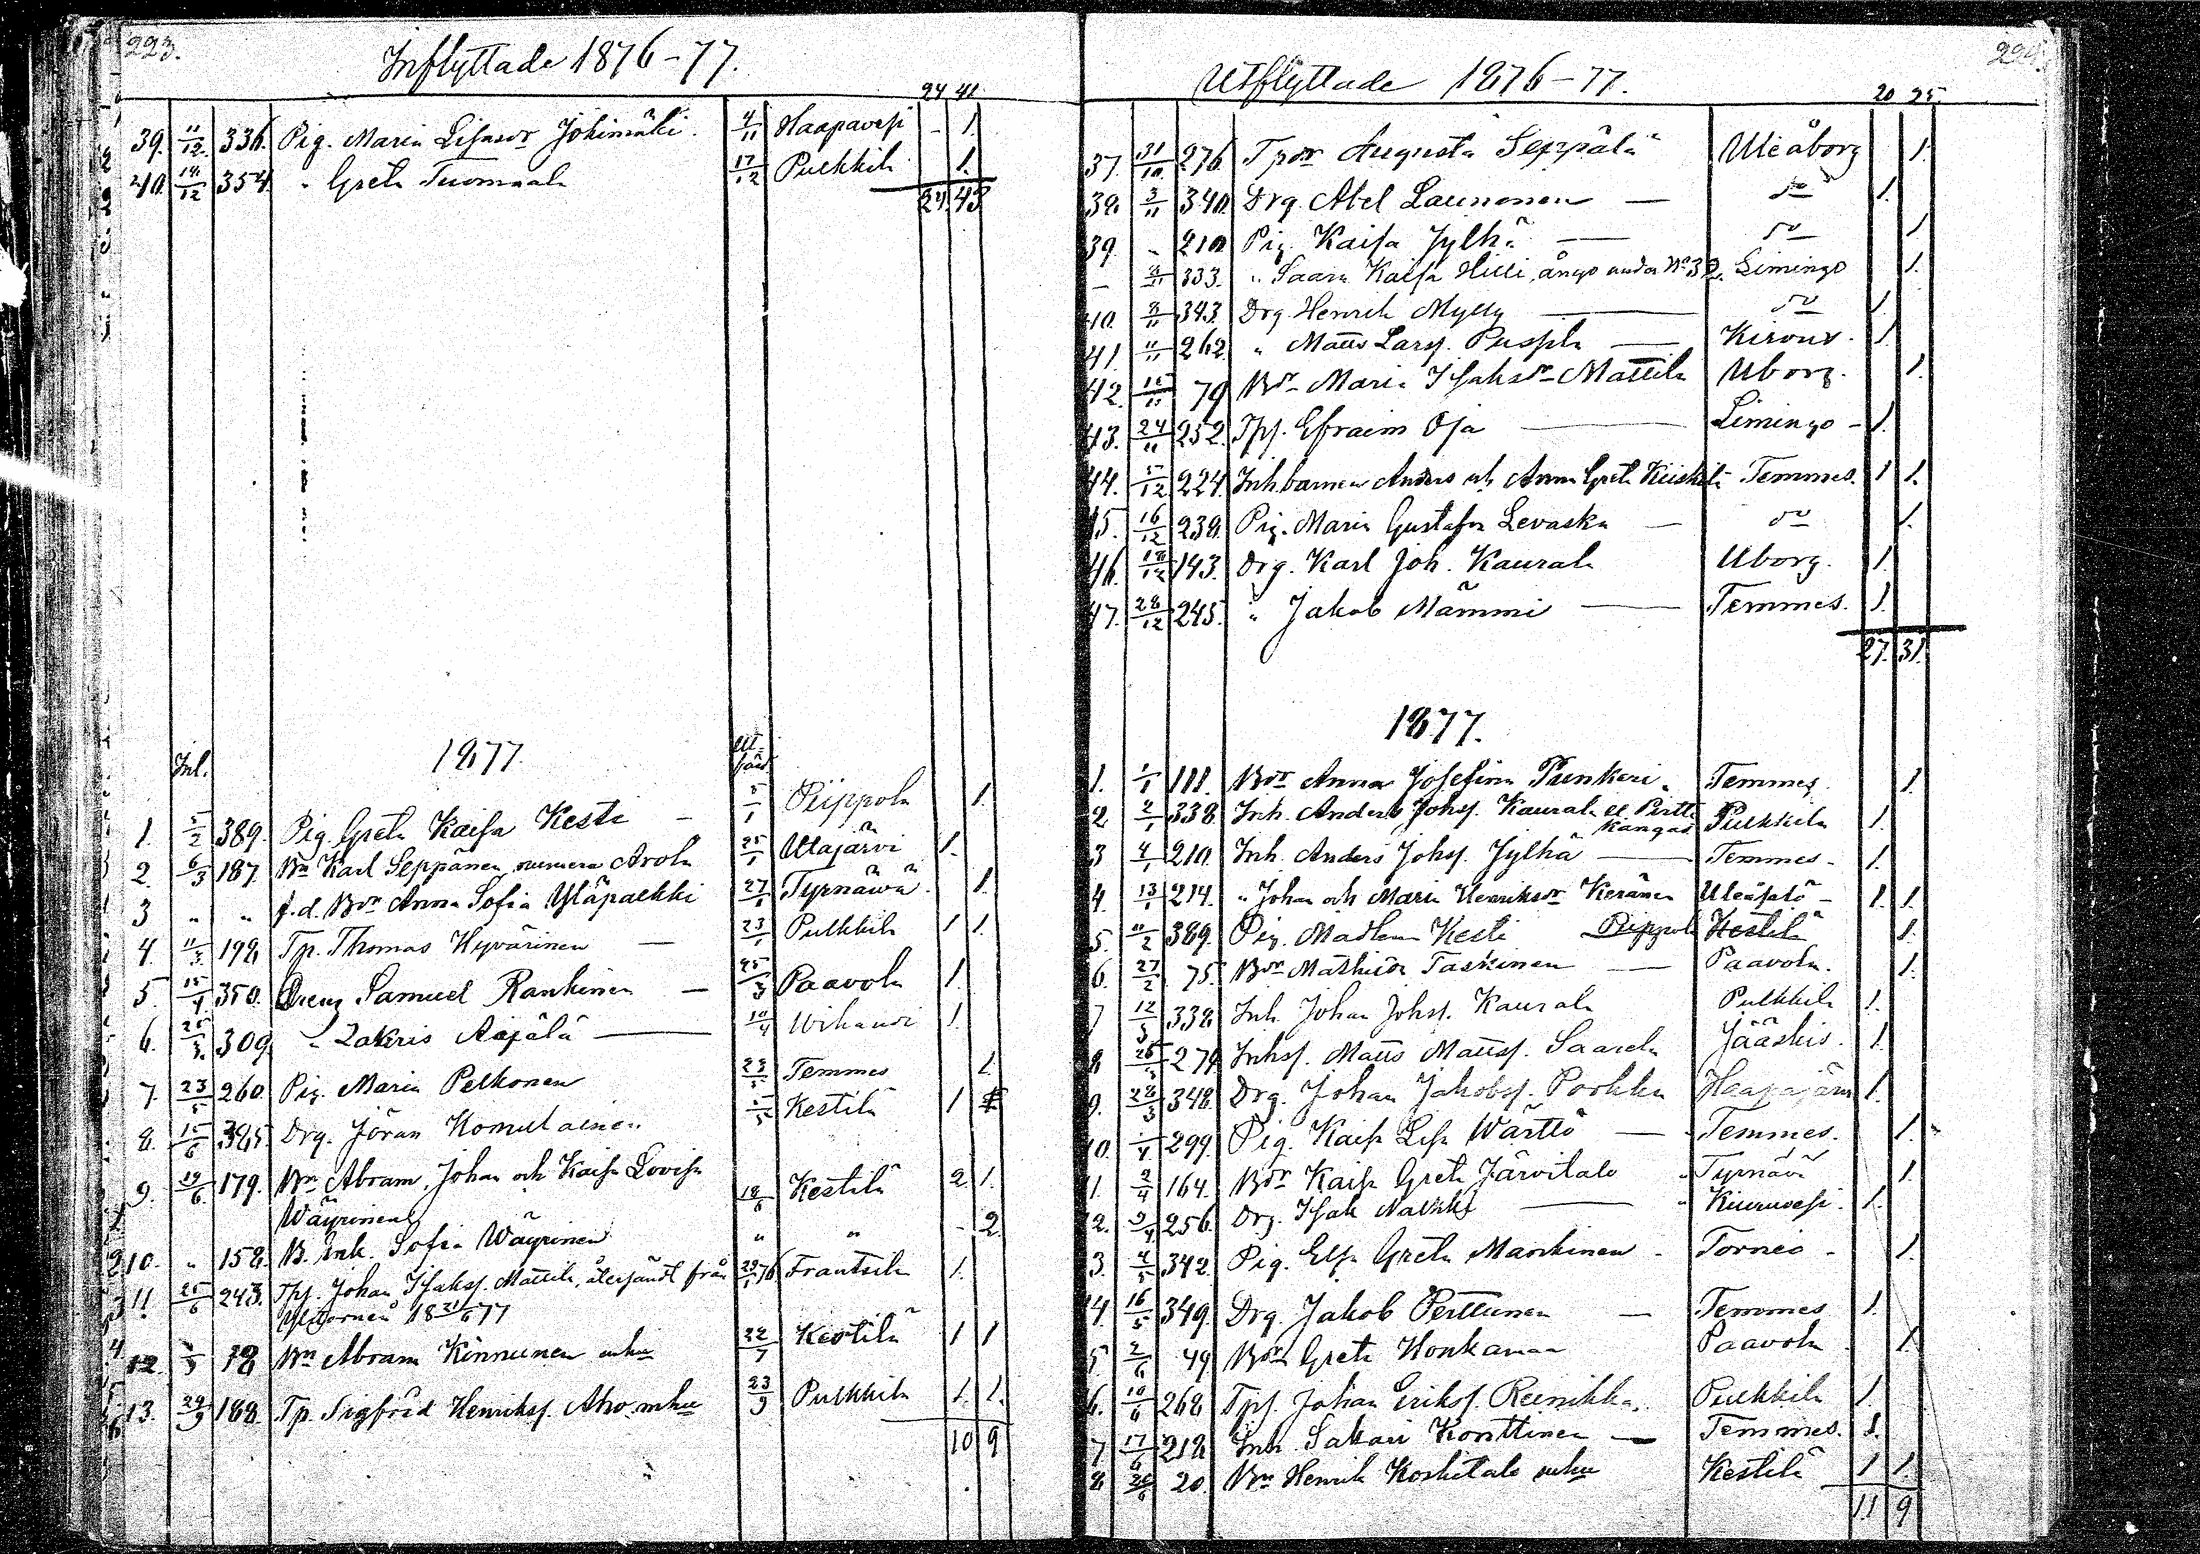 223.
Inflyttade 1876-77.
24 41
39. 11/12. 336. Pig. Maria Lisasdr Jokimäki. 4/11 Haapavesi - 1.
40. 14/12 354. " Greta Tuomaala 17/12 Pulkkila 1.
24. 43
1877.
Inl.
1. 5/2 389. Pig. Greta Kaisa Kesti - 5/1 Piippola 1.
2. 6/3 187. Bn Karl Seppänen, numera Arola 25/1 Utajärvi 1.
3 " " f.d. Bdr Anna Sofia Yläpaekki 27/1 Tyrnäwä 1.
4. 11/3 192 Tp. Thomas Hyvärinen — 23/1 Pulkkila 1 1.
5. 15/4. 350. Dreng Samuel Rankinen — 25/3 Paavola 1.
6. 25/3. 309 " Zakris Aijälä — 10/4 Wihandi 1.
7. 23/5 260. Pig. Maria Pelkonen 23/5 Temmes 1.
8. 15/6 385. Drg. Jöran Komulainen 5/5 Kestilä 1
9. 19/6 179. Bn Abram, Johan och Kaisa Lovisa
Wäyrinen 18/6 Kestilä 2 1.
10. " 158. B. Enk. Sofia Wäyrinen " " - 2.
11. 25/6 243. Tps. Johan Isakss. Mattila, återsändt från 29/1 76 Frantsila 1.
Yli Torneå 18 21/6 77
12. 78 Bn Abram Kinnunen mhu 22/7 Kestilä 1 1
13. 29/9 188. Tp. Sigfrid Henrikss. Aho mhu 23/9 Pulkkila 1. 1.
10 9
Utflyttade 1876-77.
20 25
37. 31/10. 276. Tpdr Augusta Seppälä Uleåborg 1.
38. 3/11 340. Drg. Abel Launonen — do 1.
39. " 210 Pig. Kaisa Jylhä — do 1
- 333. " Saara Kaisa Hilli, Limingo 1.
40. 8/11 343. Drg. Henrik Mylly — do 1.
41. 11/11 262. " Matts Larss. — Kiruv. 1.
42. 79 Bdr Maria Isaksdr Mattila Uborg. 1.
43. 24/11 252. Tps. Efraim Oja — Limingo - 1.
44. 5/12 224. Inh.barnen Anders och Anna Greta Keiskilä Temmes. 1 1.
45. 16/12 238. Pig. Maria Gustafsdr Levaska — do 1.
46. 18/12 143. Drg. Karl Joh. Kaurala Uborg. 1.
47. 28/12 245. " Jakob Mämmi — Temmes. 1.
27. 31.
1877.
1. 1/1 111. Bdr Anna Josefina Tunkari. Temmes. 1.
2 2/1 338. Inh. Anders Johss. Kaurala el. Pirtti
kangas Pulkkila 1.
3 4/1 210. Inh. Anders Johss. Jylhä — Temmes - 1.
4. 13/1 214. " Johan och Maria Henriksdr Keränen Uleåsalo - 1. 1
5. 11/2 389. Pig. Madlena Kesti Piippola Kestilä 1.
6. 27/2 75. Bdr Mathilda Taskinen — Paavola. 1.
7 12/3 338. Inh. Johan Johss. Kaurala Pulkkila 1.
8 26/3 279. Inhs. Matts Mattss. Saarela Jääskis. 1.
9. 28/3 348. Drg. Johan Jakobss. Porkka Haapajärvi 1.
10. 299. Pig. Kaisa Lisa Wärttö — Temmes. 1.
11. 2/4 164. Bdr Kaisa Greta Järvitalo Tyrnävä 1.
12. 9/4 256. Drg. Isak — Kiuruvesi. 1.
3. 4/5 342. Pig. Elsa Greta Mankinen - Torneo - 1.
14. 16/5 349. Drg. Jakob Perttunen — Temmes 1.
5 2/6 49. Bdr Greta Honkanen Paavola 1.
6. 10/6 268. Tps. Johan Erikss. Reinikka. Pulkkila 1.
7 17/6 218. Inh. Sakari Konttinen — Temmes. 1.
8 26/6 20. Bn Henrik Koskitalo mhu Kestilä 1 1.
11 9